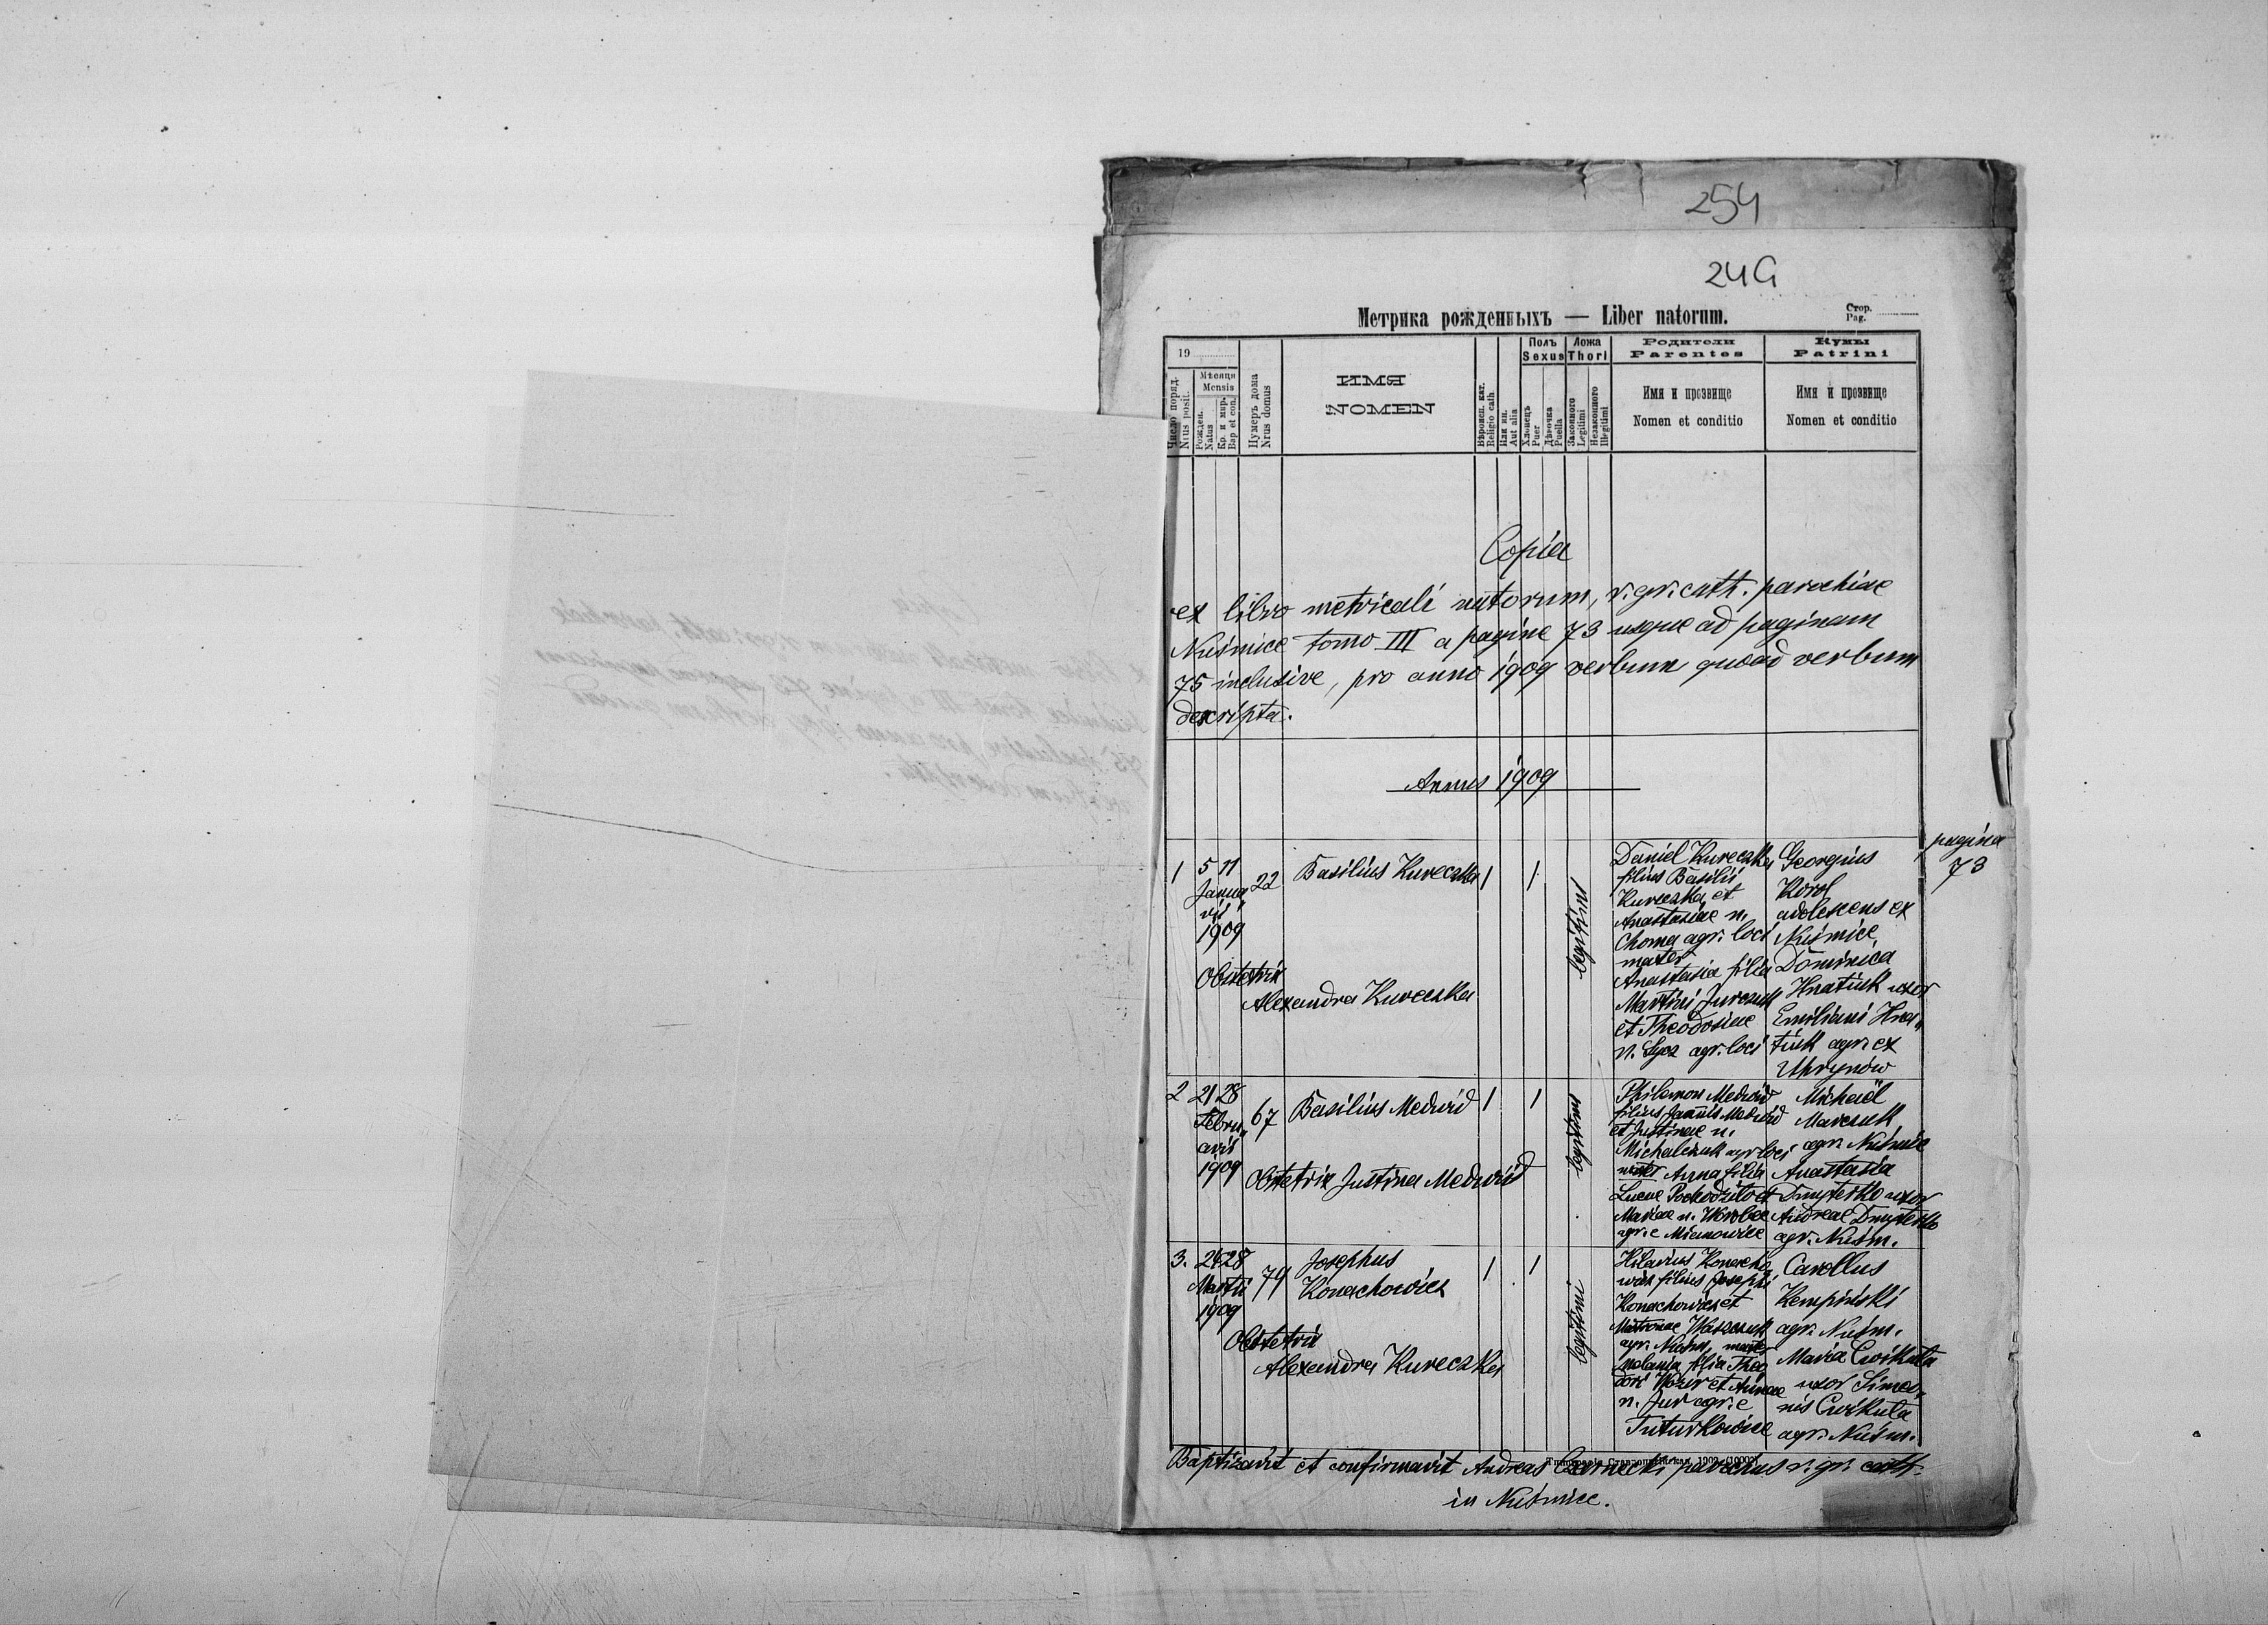 254
24G
Метрика рожденныхъ — Liber natorum.
Стор.
Pag.
19
Число поряд.
Nrus posit.
Мѣсяця
Mensis
Рожден.
Natus
Кр. и мир.
Bap et con.
Нумеръ дома
Nrus domus
ИМЯ
NOMEN
Вѣроисп. кат.
Religio cath
Или ин.
Aut alia
Полъ
Sexus
Хлопецъ
Puer
Дѣвочка
Puella
Ложа
Thori
Законного
Legitimi
Незаконного
Illegitimi
Родители
Parentes
Имя и прозвище
Nomen et conditio
Кумы
Patrini
Имя и прозвище
Nomen et conditio
Copia
ex libro metricali natorum, r. gr. cath. parochiae
Nuśmice tomo III a pagine 73 usque ad paginam
75 inclusive, pro anno 1909 verbum quoad verbum
descripta.
Annus 1909
pagina
73
1
5 11
Janua„
rii
1909
22
Basilius Kureczka
1
1
Obstetrix
Alexandra Kureczka
legitimi
Daniel Kureczka
filius Basilii
Kureczka et
Anastasiae n.
Choma agr. loci
mater
Anastasia filia
Martini Jurczuk
et Theodosiae
n. Lyoz agr. loci
Georgius
Korol
adolescens ex
Nuśmice,
Dominica
Hnatiuk uxor
Emiliani Hna„
tiuk agr. ex
Uhrynów
2
21 28
Febru„
arii
1909
67
Basilius Medwid
1
1
Obstetrix Justina Medwid
legitimi
Philemon Medwid
filius Joannis Medwid
et Justinae n.
Michalczuk agr. loci
mater Anna filia
Lucae Pochodziło et
Mariae n. Worobec
agr. e Mianowice
Michaël
Marczuk
agr. Nuśmice
Anastasia
Dmyterko uxor
Andreae Dmyterko
agr. Nuśm.
3.
24 28
Martii
1909
74
Josephus
Konachowicz
1
1
Obstetrix
Alexandra Kureczka
legitimi
Hilarius Konacho
wicz filius Josephi
Konachowicz et
Matronae Waszczuk
agr. Nuśm, mater
Melania filia Theo
dori Kozir et Annae
n. Jur agr. e
Tuturkowice
Carollus
Kempiński
agr. Nuśm.
Maria Cwikuła
uxor Simeo„
nis Cwikuła
agr. Nuśm.
Baptizavit et confirmavit Andreas Czarnecki parochus r. gr. cath.
in Nuśmice.